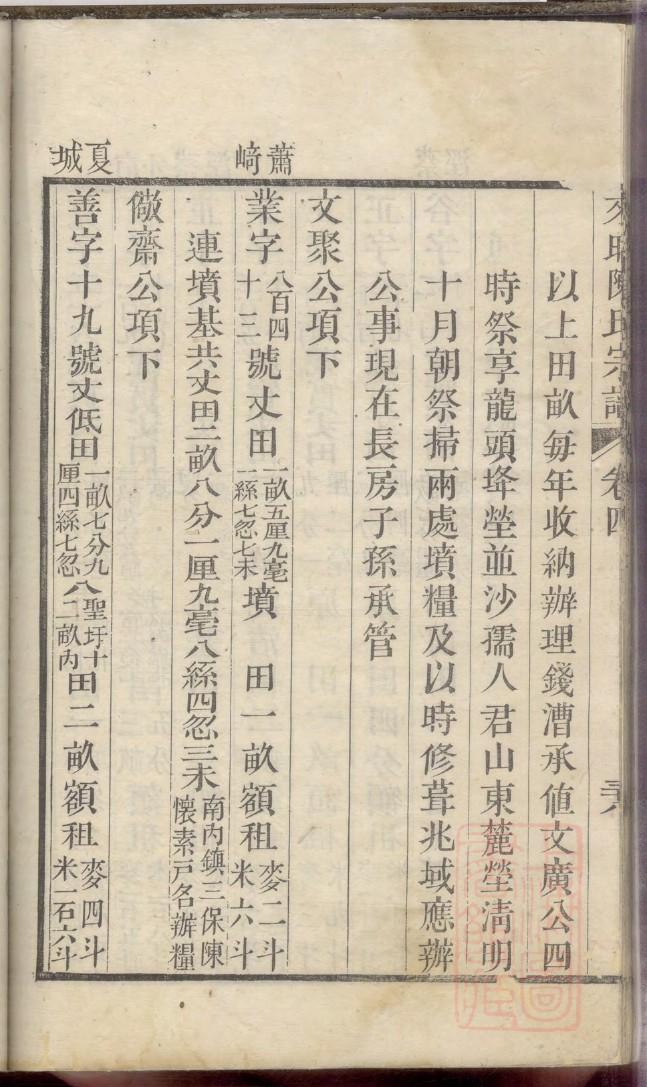 陳氏宗譜 卷四
以上田畝每年收納辦理錢漕承値文廣公四
時祭享龍頭垟塋並沙孺人君山東麓塋淸明
十月朝祭掃兩處墳糧及以時修葺兆域應辦
公事現在長房子孫承管
文聚公項下
蕭﨑
業字八百四十三號丈田一畝五厘九毫一絲七忽七未墳田一畝額租麥二斗米六斗
連墳基共丈田二畝八分一厘九毫八絲四忽三未南內鎮三保陳懷素戸名辦糧
儆齋公項下
夏城
善字十九號丈低田一畝七分九厘四絲七忽八聖圩十八二畝內田二畝額租麥四斗米一石六斗